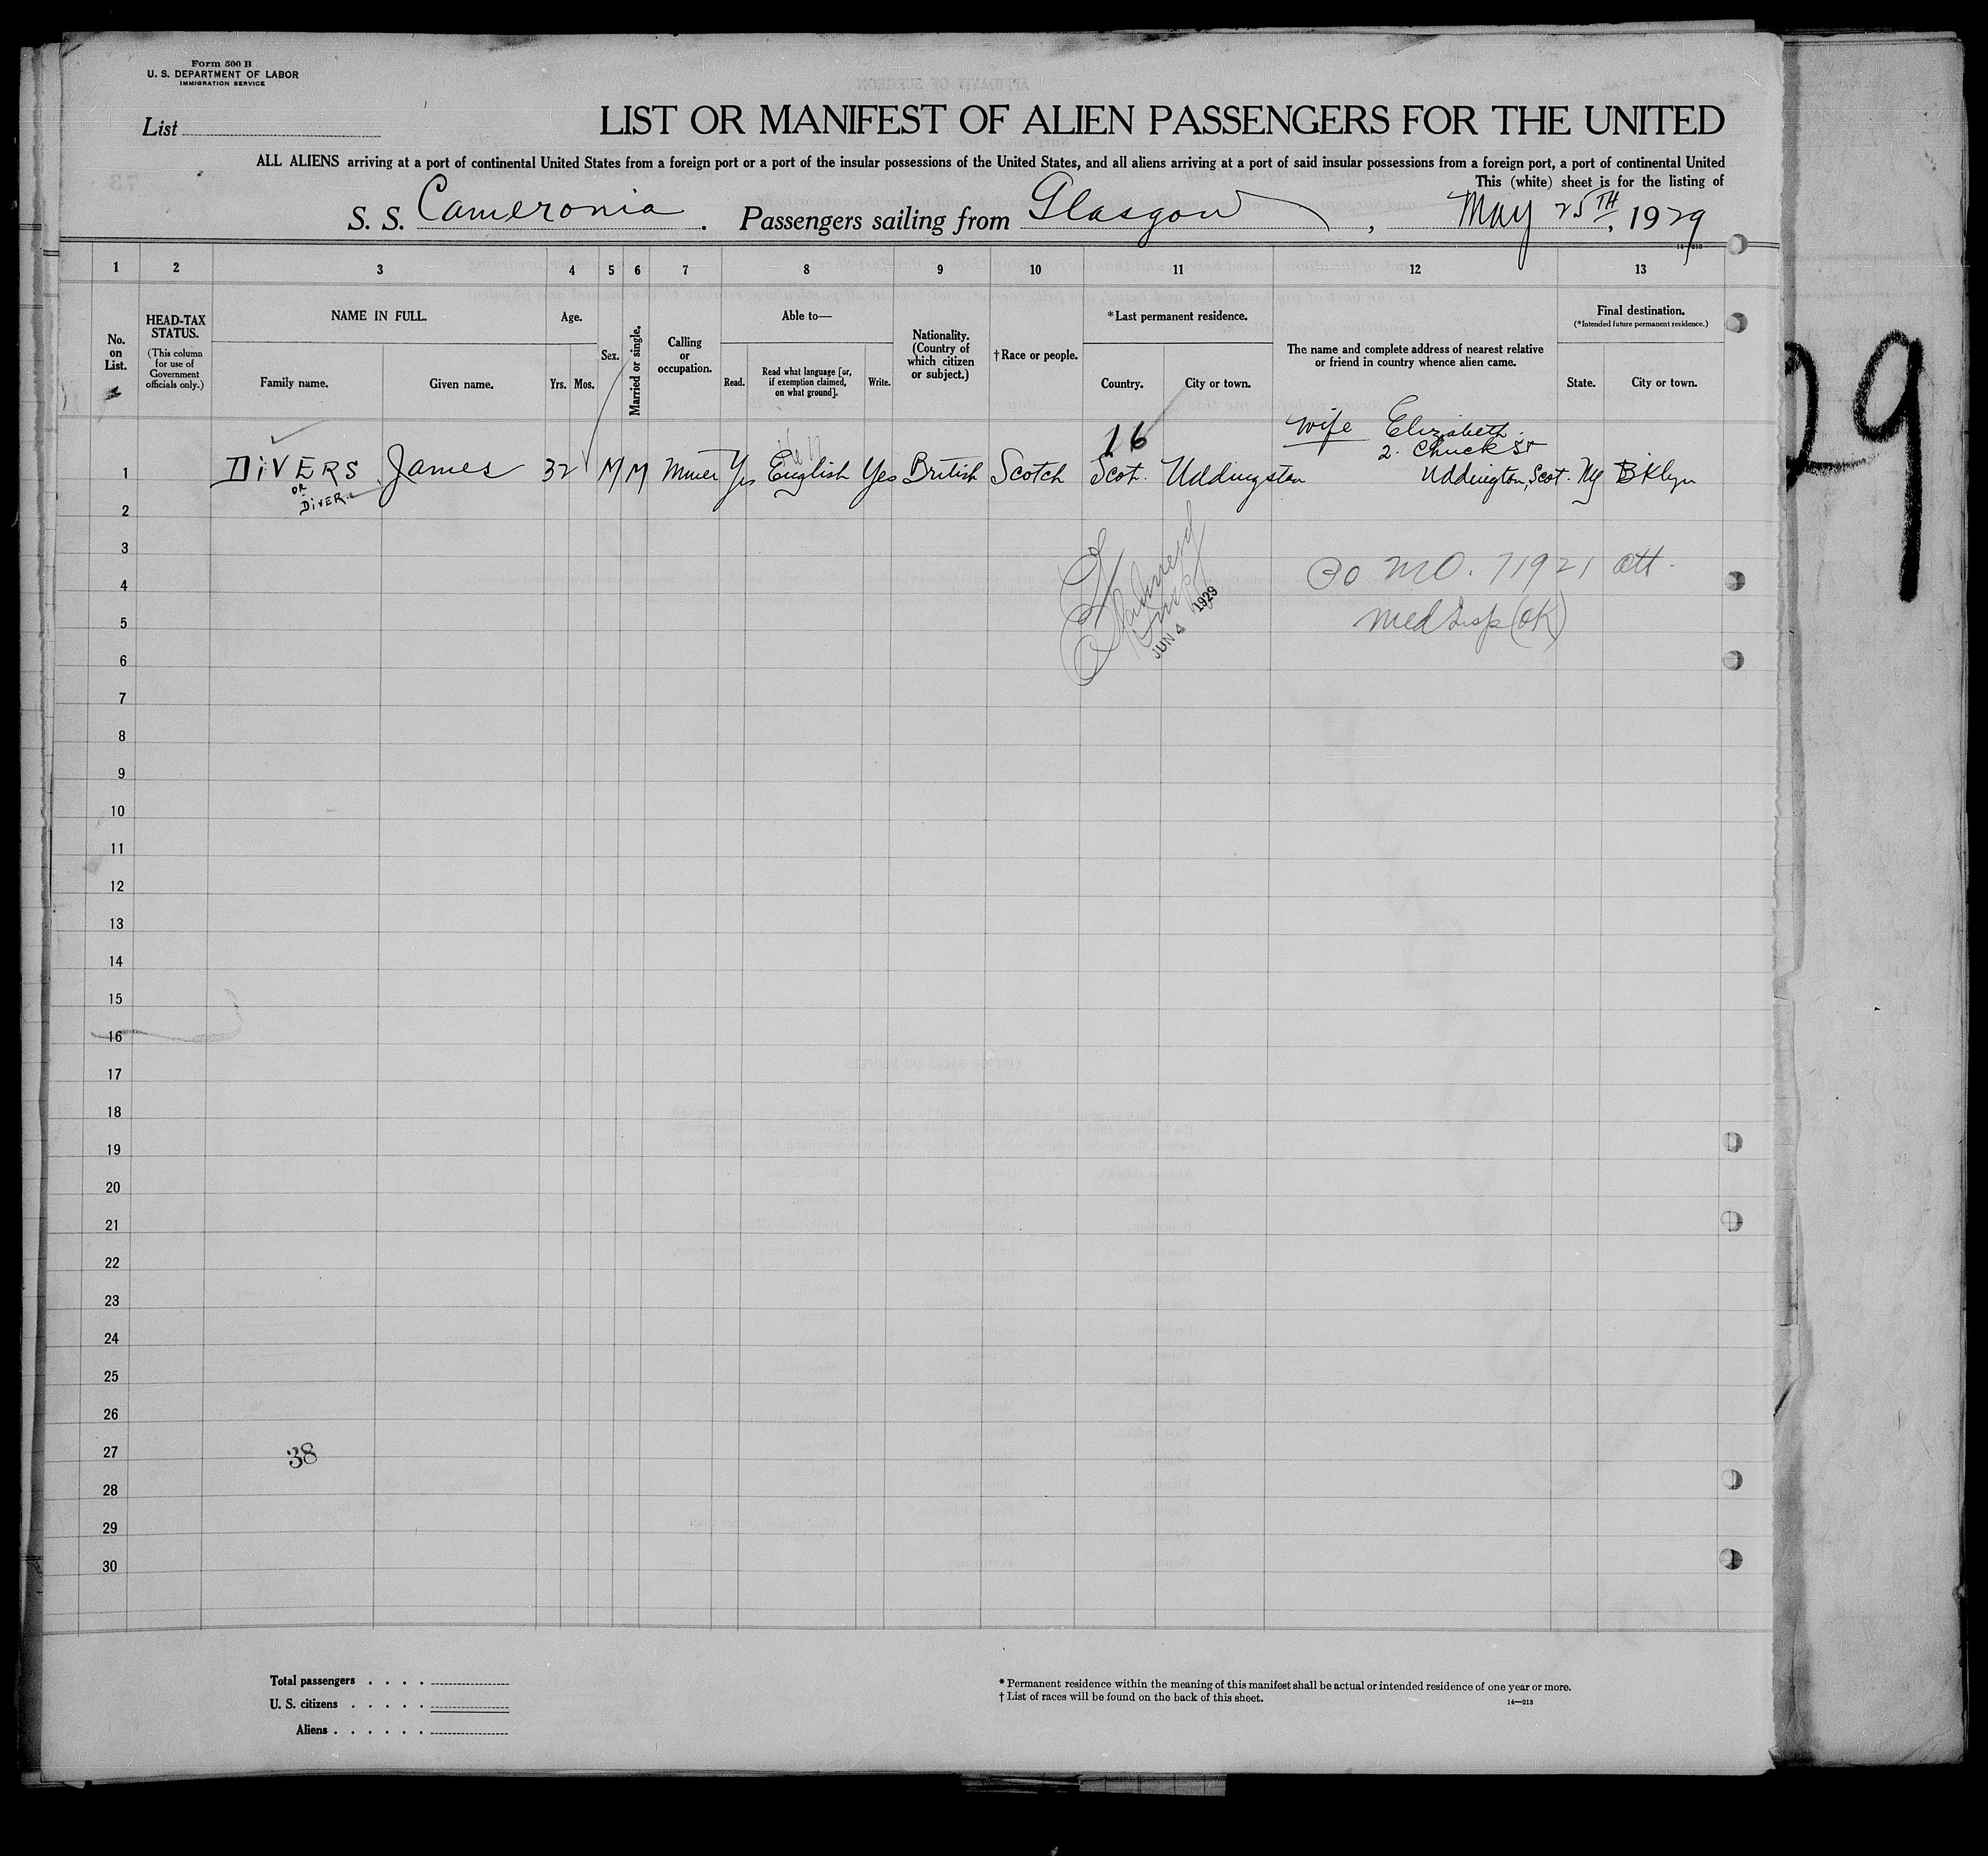 Form 500 B
U. S. DEPARTMENT OF LABOR
IMMIGRATION SERVICE
List
LIST OR MANIFEST OF ALIEN PASSENGERS FOR THE UNITED
ALL ALIENS arriving at a port of continental United States from a foreign port or a port of the insular possessions of the United States, and all aliens arriving at a port of said insular possessions from a foreign port, a port of continental United
This (white) sheet is for the listing of
S. S. Cameronia. Passengers sailing from Glasgow, May 25TH, 1929
14-213
1 2 3 4 5 6 7 8 9 10 11 12 13
No. on List.
HEAD-TAX STATUS.
(This column for use of Government officials only.)
NAME IN FULL.
Family name. Given name.
Age.
Yrs. Mos.
Sex.
Married or single.
Calling or occupation.
Able to—
Read. Read what language [or, if exemption claimed, on what ground]. Write.
Nationality. (Country of which citizen or subject.)
†Race or people.
*Last permanent residence.
Country. City or town.
The name and complete address of nearest relative or friend in country whence alien came.
Final destination.
(*Intended future permanent residence.)
State. City or town.
16
wife Elizabeth
2. Chuck St
1 DIVERS James 32 M M Miner Yes English Yes British Scotch Scot. Uddingston Uddington, Scot. Ny BKlyn
or
DIVER
2
3
4
5
6
7
8
9
10
11
12
13
14
15
16
17
18
19
20
21
22
23
24
25
26
27
28
29
30
JUN 4 1929
MO. 71921 att.
Med Insp (OK)
38
29
Total passengers
U. S. citizens
Aliens
* Permanent residence within the meaning of this manifest shall be actual or intended residence of one year or more.
† List of races will be found on the back of this sheet.
14—213